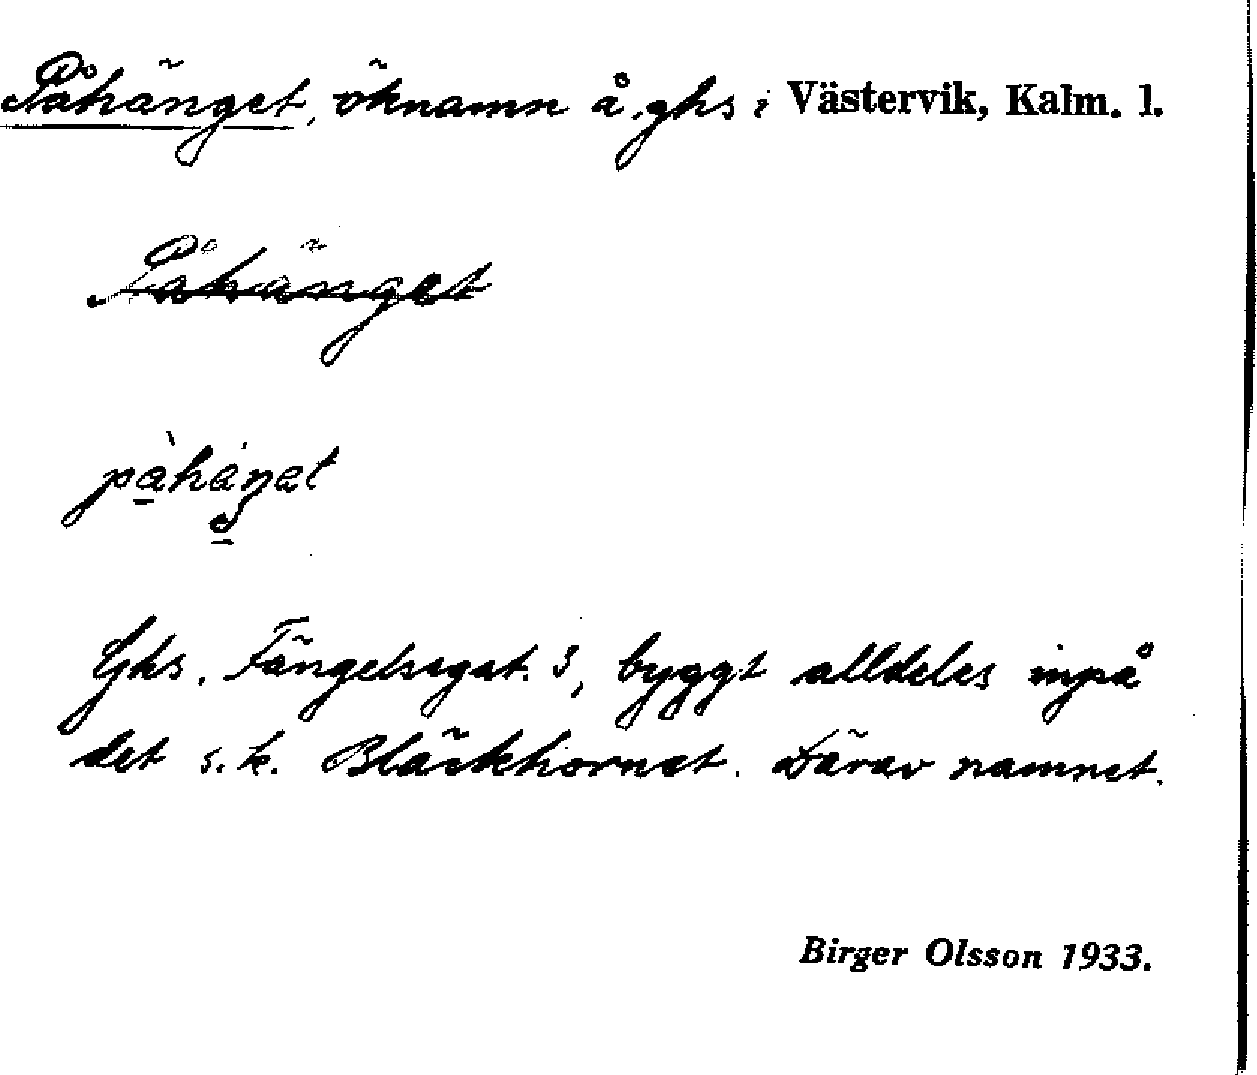 Påhänget, öknamn å ghs i Västervik, Kalm. l.
Påhänget
Ghs. Fängelsegat. 3, byggt alldeles inpå
det s.k. Bläckhornet. Därav namnet.
Birger Olsson 1933.